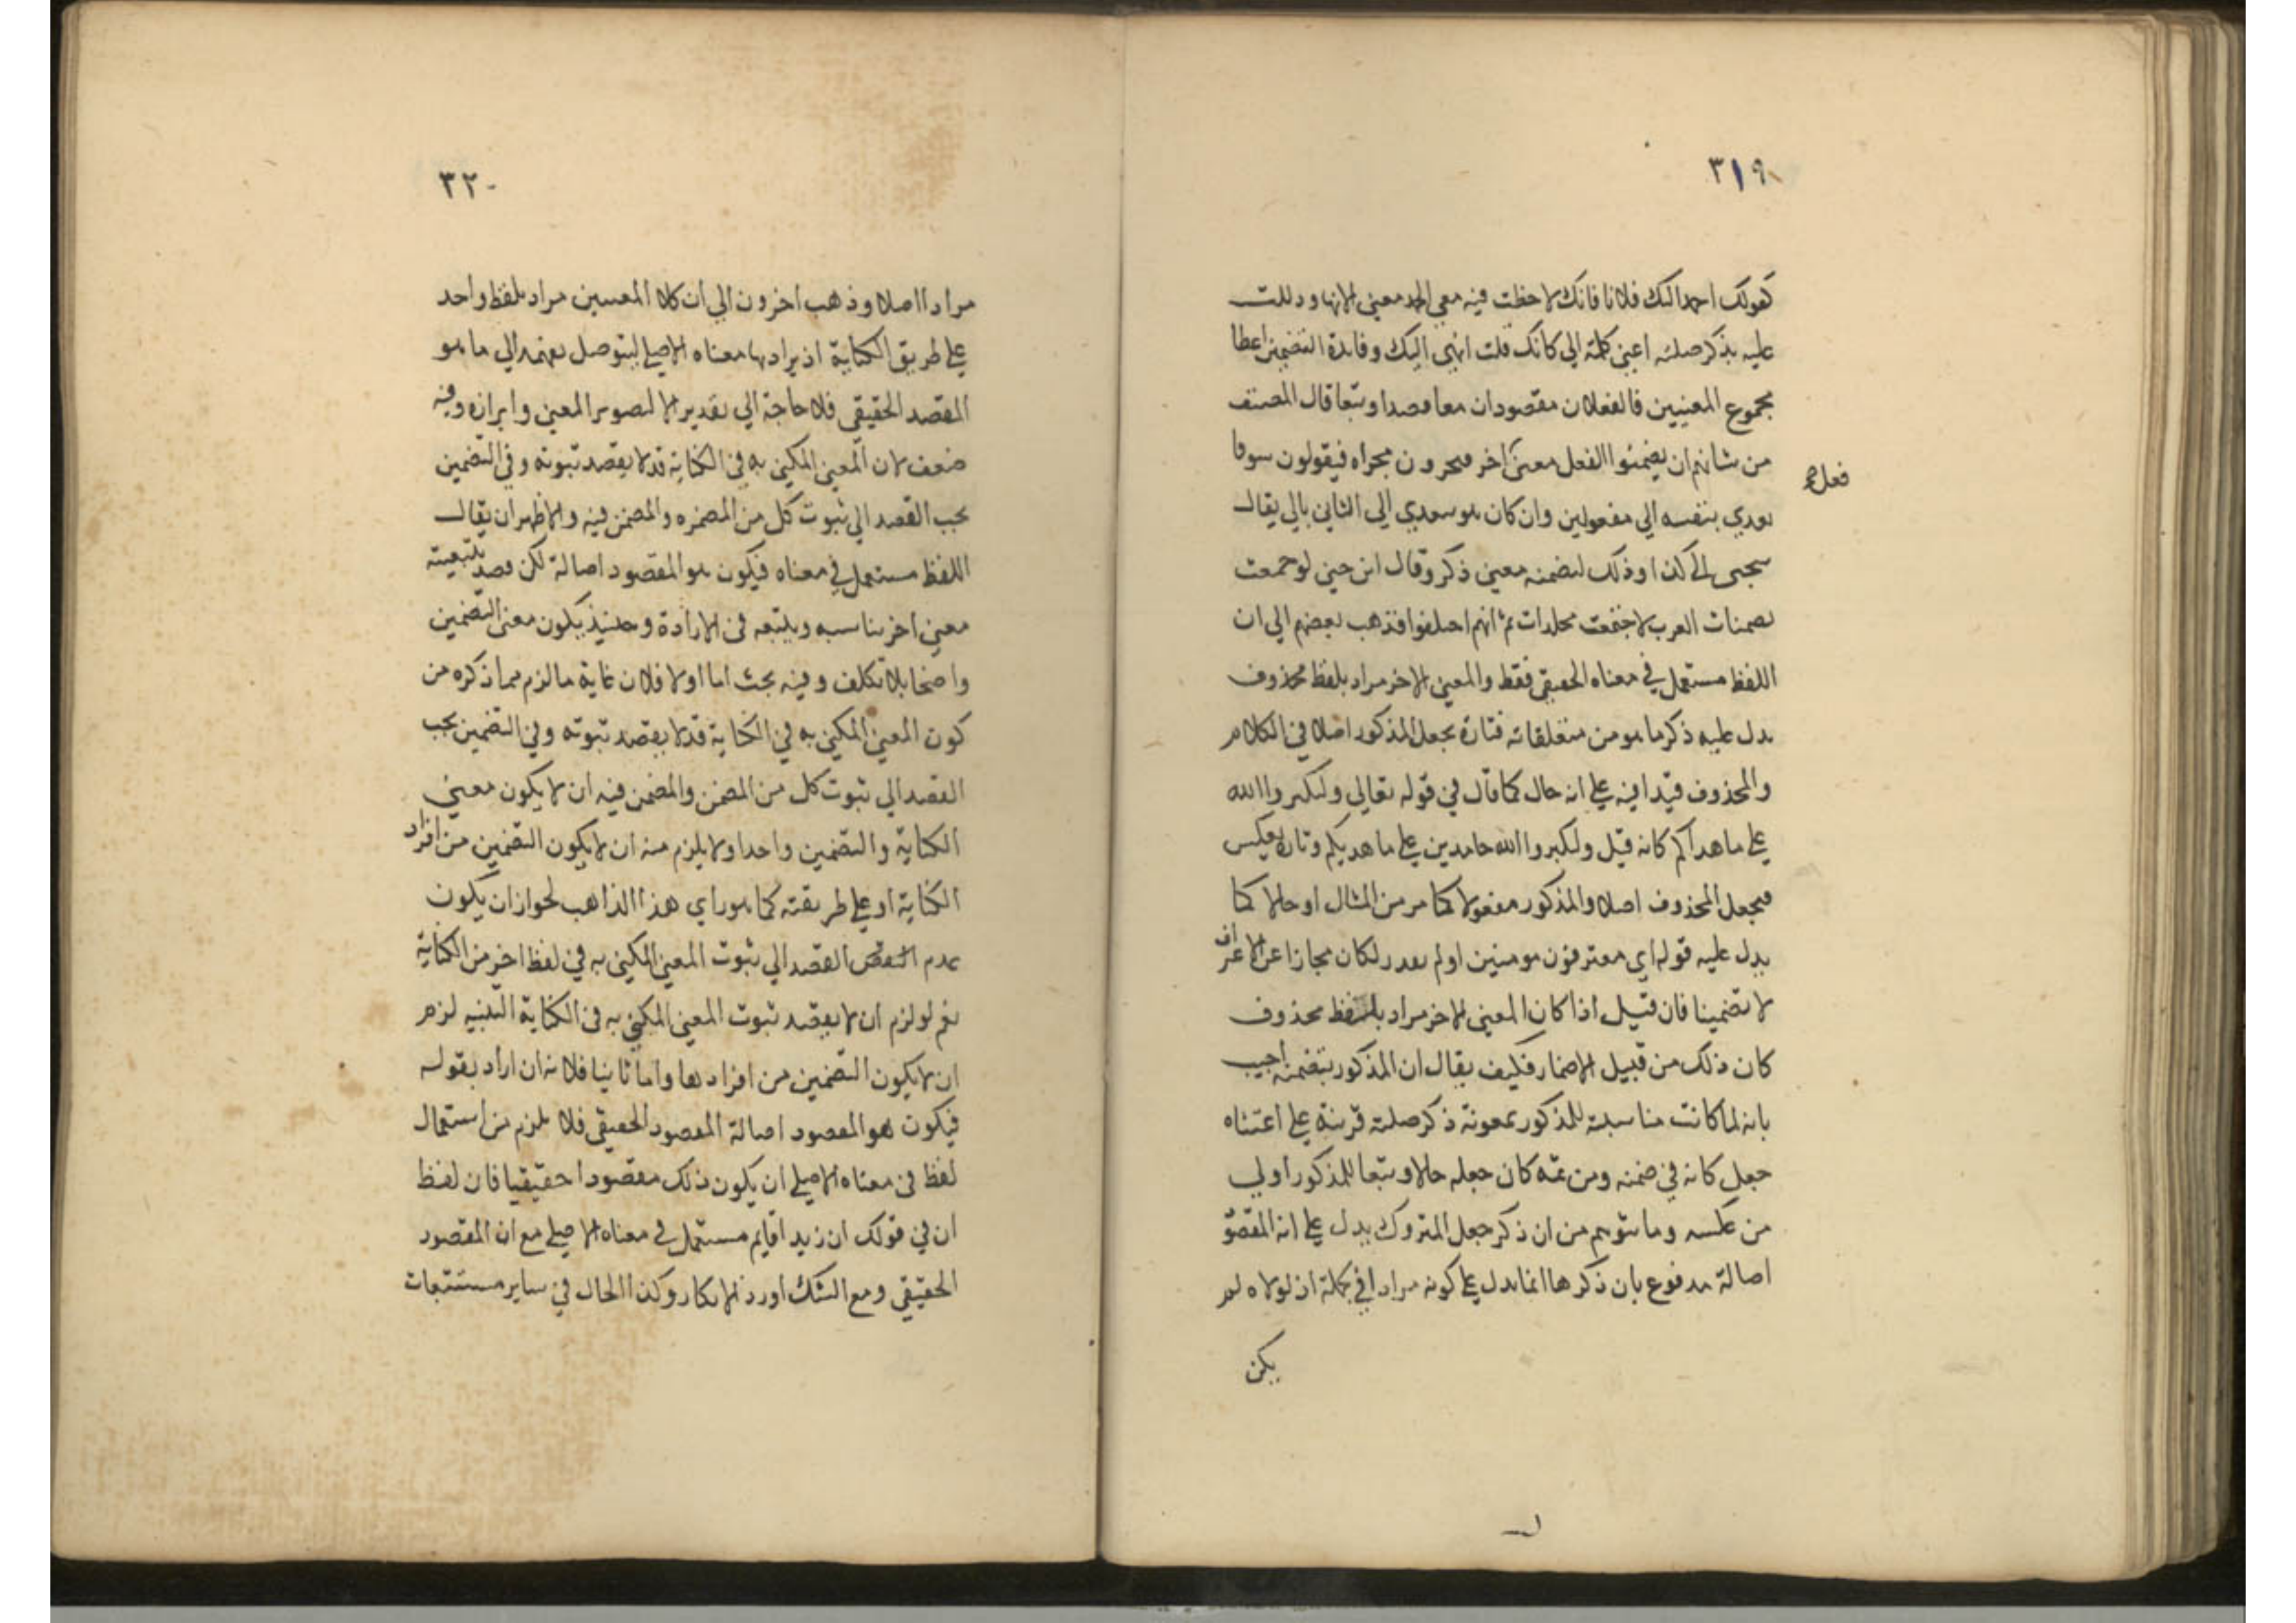 ٣١٩
كقولك احمد اليك فلانا فانك لاحظت فيه معنى الحمد معنى الانهاء ودللت
عليه بذكر صلته اعنى كلمة الى كانك قلت انهى اليك وفايدة التضمين اعطا
مجموع المعنيين فالفعلان مقصودان معا قصدا وتبعا قال المصنف
من شانهم ان يضمنوا الفعل معنى اخر فيجرون مجراه فيقولون سوفا
فعل
يعدي بنفسه الي مفعولين وان كان هو يتعدي الى الثاني بالي يقال
هيجنى الى كذا وذلك لتضمنه معنى ذكر وقال ابن جنى لو جمعت
تضمينات العرب لاجتمعت مجلدات ثم انهم اختلفوا فذهب بعضهم الي ان
اللفظ مستعمل في معناه الحقيقي فقط والمعنى الاخر مراد بلفظ محذوف
يدل عليه ذكر ما هو من متعلقاته فتارة يجعل المذكور اصلا في الكلام
والمحذوف قيدا فيه على انه حال كما قال في قوله تعالى ولتكبروا الله
على ما هداكم كانه قيل ولتكبروا الله حامدين على ما هديكم وتارة يعكس
فيجعل المحذوف اصلا والمذكور مفعولا كما مر من المثال او حالا كما
يدل عليه قوله اي معترفون مومنين اولم يقدر لكان مجازا عن الاعتراف
لا تضمينا فان قيل اذا كان المعنى الاخر مراد بلفظ محذوف
كان ذلك من قبيل الاضمار فكيف يقال ان المذكور يتضمنه اجيب
بانه لما كانت مناسبته للمذكور بمعونة ذكر صلته قرينة على اعتباره
جعل كانه في ضمنه ومن ثمه كان جعله حالا وتبعا للمذكور اولي
من عكسه وما يتوهم من ان ذكر جعل المتروك يدل على انه المقصود
اصالة مدفوع بان ذكرها انما يدل على كونه مرادا في الجملة اذ لولاه لم
يكن
٣٢٠
مرادا اصلا وذهب اخرون الي ان كلا المعنيين مراد بلفظ واحد
على طريق الكناية اذ يراد بها معناه الاصلي ليتوصل بفهمه الي ما هو
المقصد الحقيقي فلا حاجة الي تقدير الا لتصوير المعنى وابرازه وفيه
ضعف لان المعنى المكنى به في الكناية قد لا يقصد ثبوته وفي التضمين
يجب القصد الي ثبوت كل من المضمن والمضمن فيه والاظهر ان يقال
اللفظ مستعمل في معناه فيكون هو المقصود اصالة لكن قصد بتبعيته
معنى اخر يناسبه ويتبعه في الارادة وحينئذ يكون معنى التضمين
واضحا بلا تكلف وفيه بحث اما اولا فلان غاية ما لزم مما ذكره من
كون المعنى المكنى به في الكناية قد لا يقصد ثبوته وفي التضمين يجب
القصد الي ثبوت كل من المضمن والمضمن فيه ان لا يكون معنى
الكناية والتضمين واحدا ولا يلزم منه ان لا يكون التضمين من افراد
الكناية او على طريقته كما هو راي هذا الذاهب لجواز ان يكون
عدم القصد الي ثبوت المعنى المكنى به في لفظ اخر من الكناية
نعم لو لزم ان لا يقصد ثبوت المعنى المكنى به في الكناية لزم
ان لا يكون التضمين من افرادها واما ثانيا فلانه ان اراد بقوله
فيكون هو المقصود اصالة المقصود الحقيقي فلا يلزم من استعمال
لفظ في معناه الاصلي ان يكون ذلك مقصودا حقيقيا فان لفظ
ان في قولك ان زيدا قايم مستعمل في معناه الاصلي مع ان المقصود
الحقيقي دفع الشك اورد الانكار وكذا الحال في ساير مستتبعات